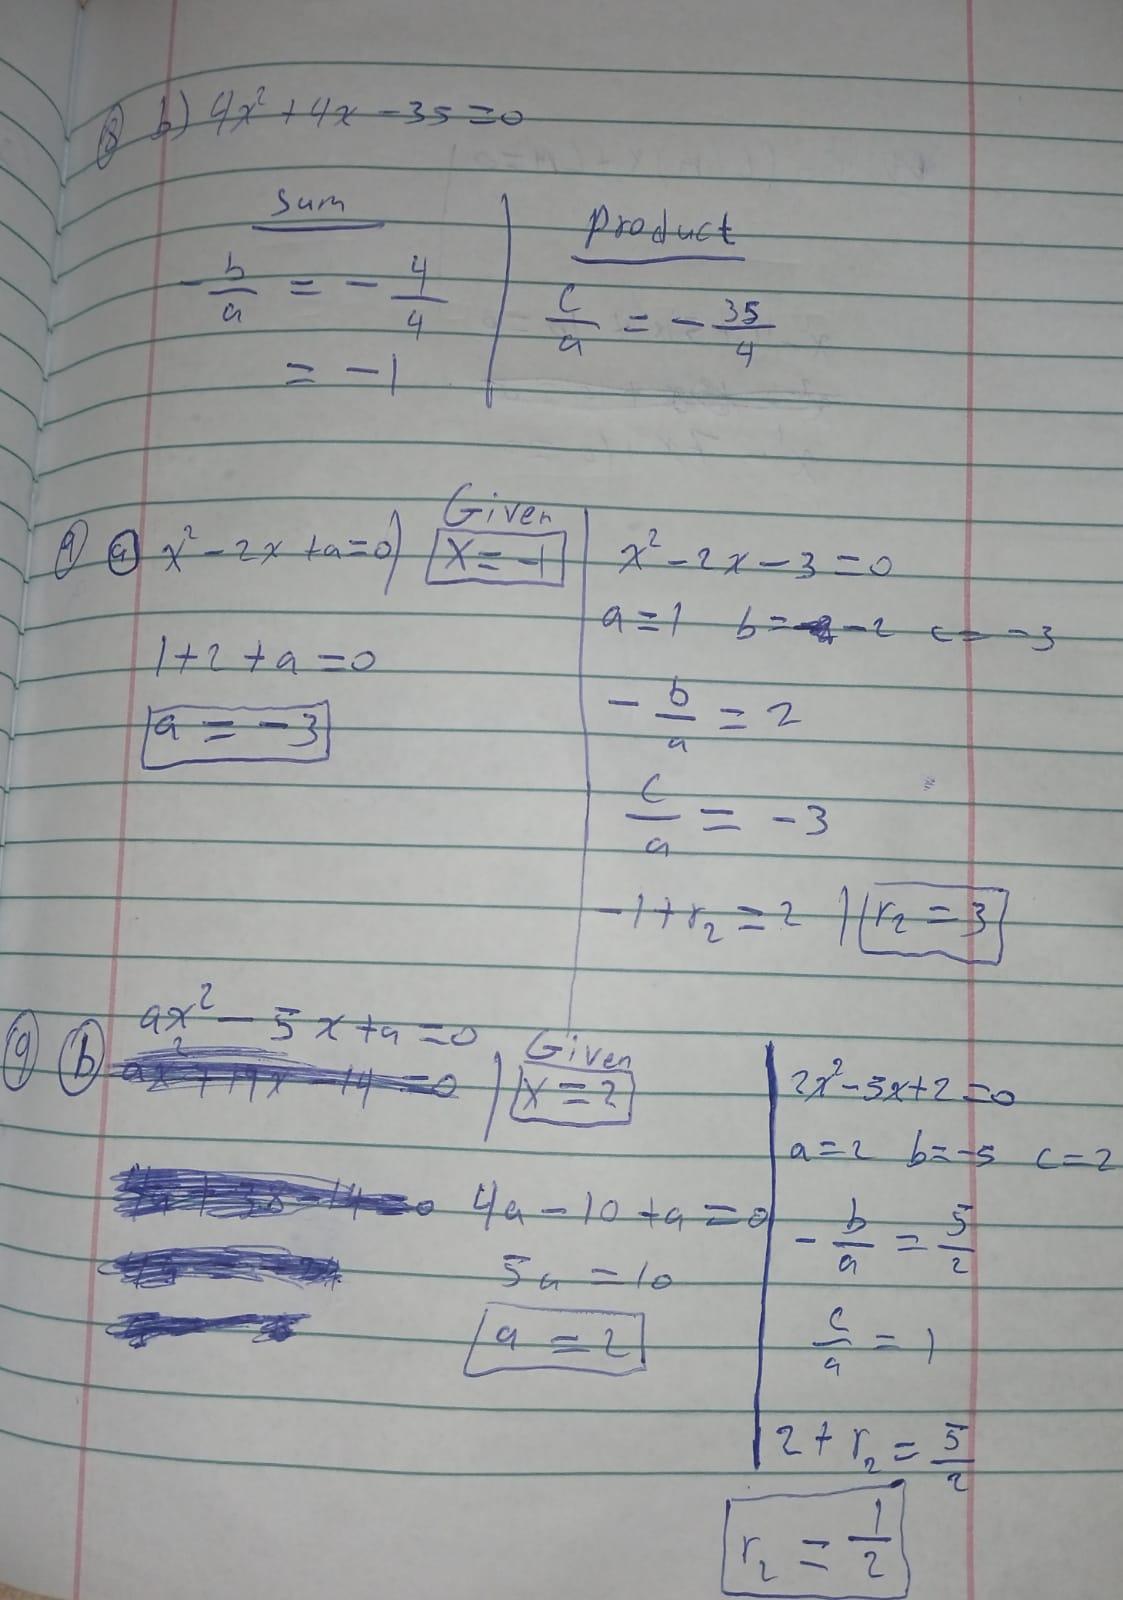 ⑧ b) 4x² + 4x - 35 = 0
Sum
- b/a = - 4/4
= -1
Product
c/a = - 35/4
⑨ ⓐ x² - 2x + a = 0
Given
x = -1
1 + 2 + a = 0
a = -3
x² - 2x - 3 = 0
a = 1 b = -2 c = -3
- b/a = 2
c/a = -3
-1 + r₂ = 2 | r₂ = 3
⑨ ⓑ ax² - 5x + a = 0
Given
x = 2
4a - 10 + a = 0
5a = 10
a = 2
2x² - 5x + 2 = 0
a = 2 b = -5 c = 2
- b/a = 5/2
c/a = 1
2 + r₂ = 5/2
r₂ = 1/2